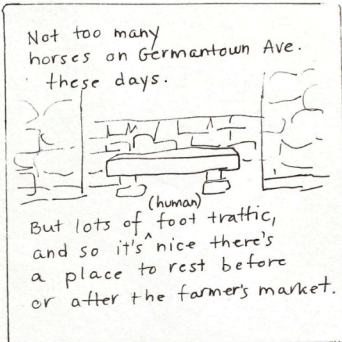 Not too many
horses on Germantown Ave.
these days.
(human)
But lots of ^ foot traffic,
and so it's nice there's
a place to rest before
or after the farmer's market.